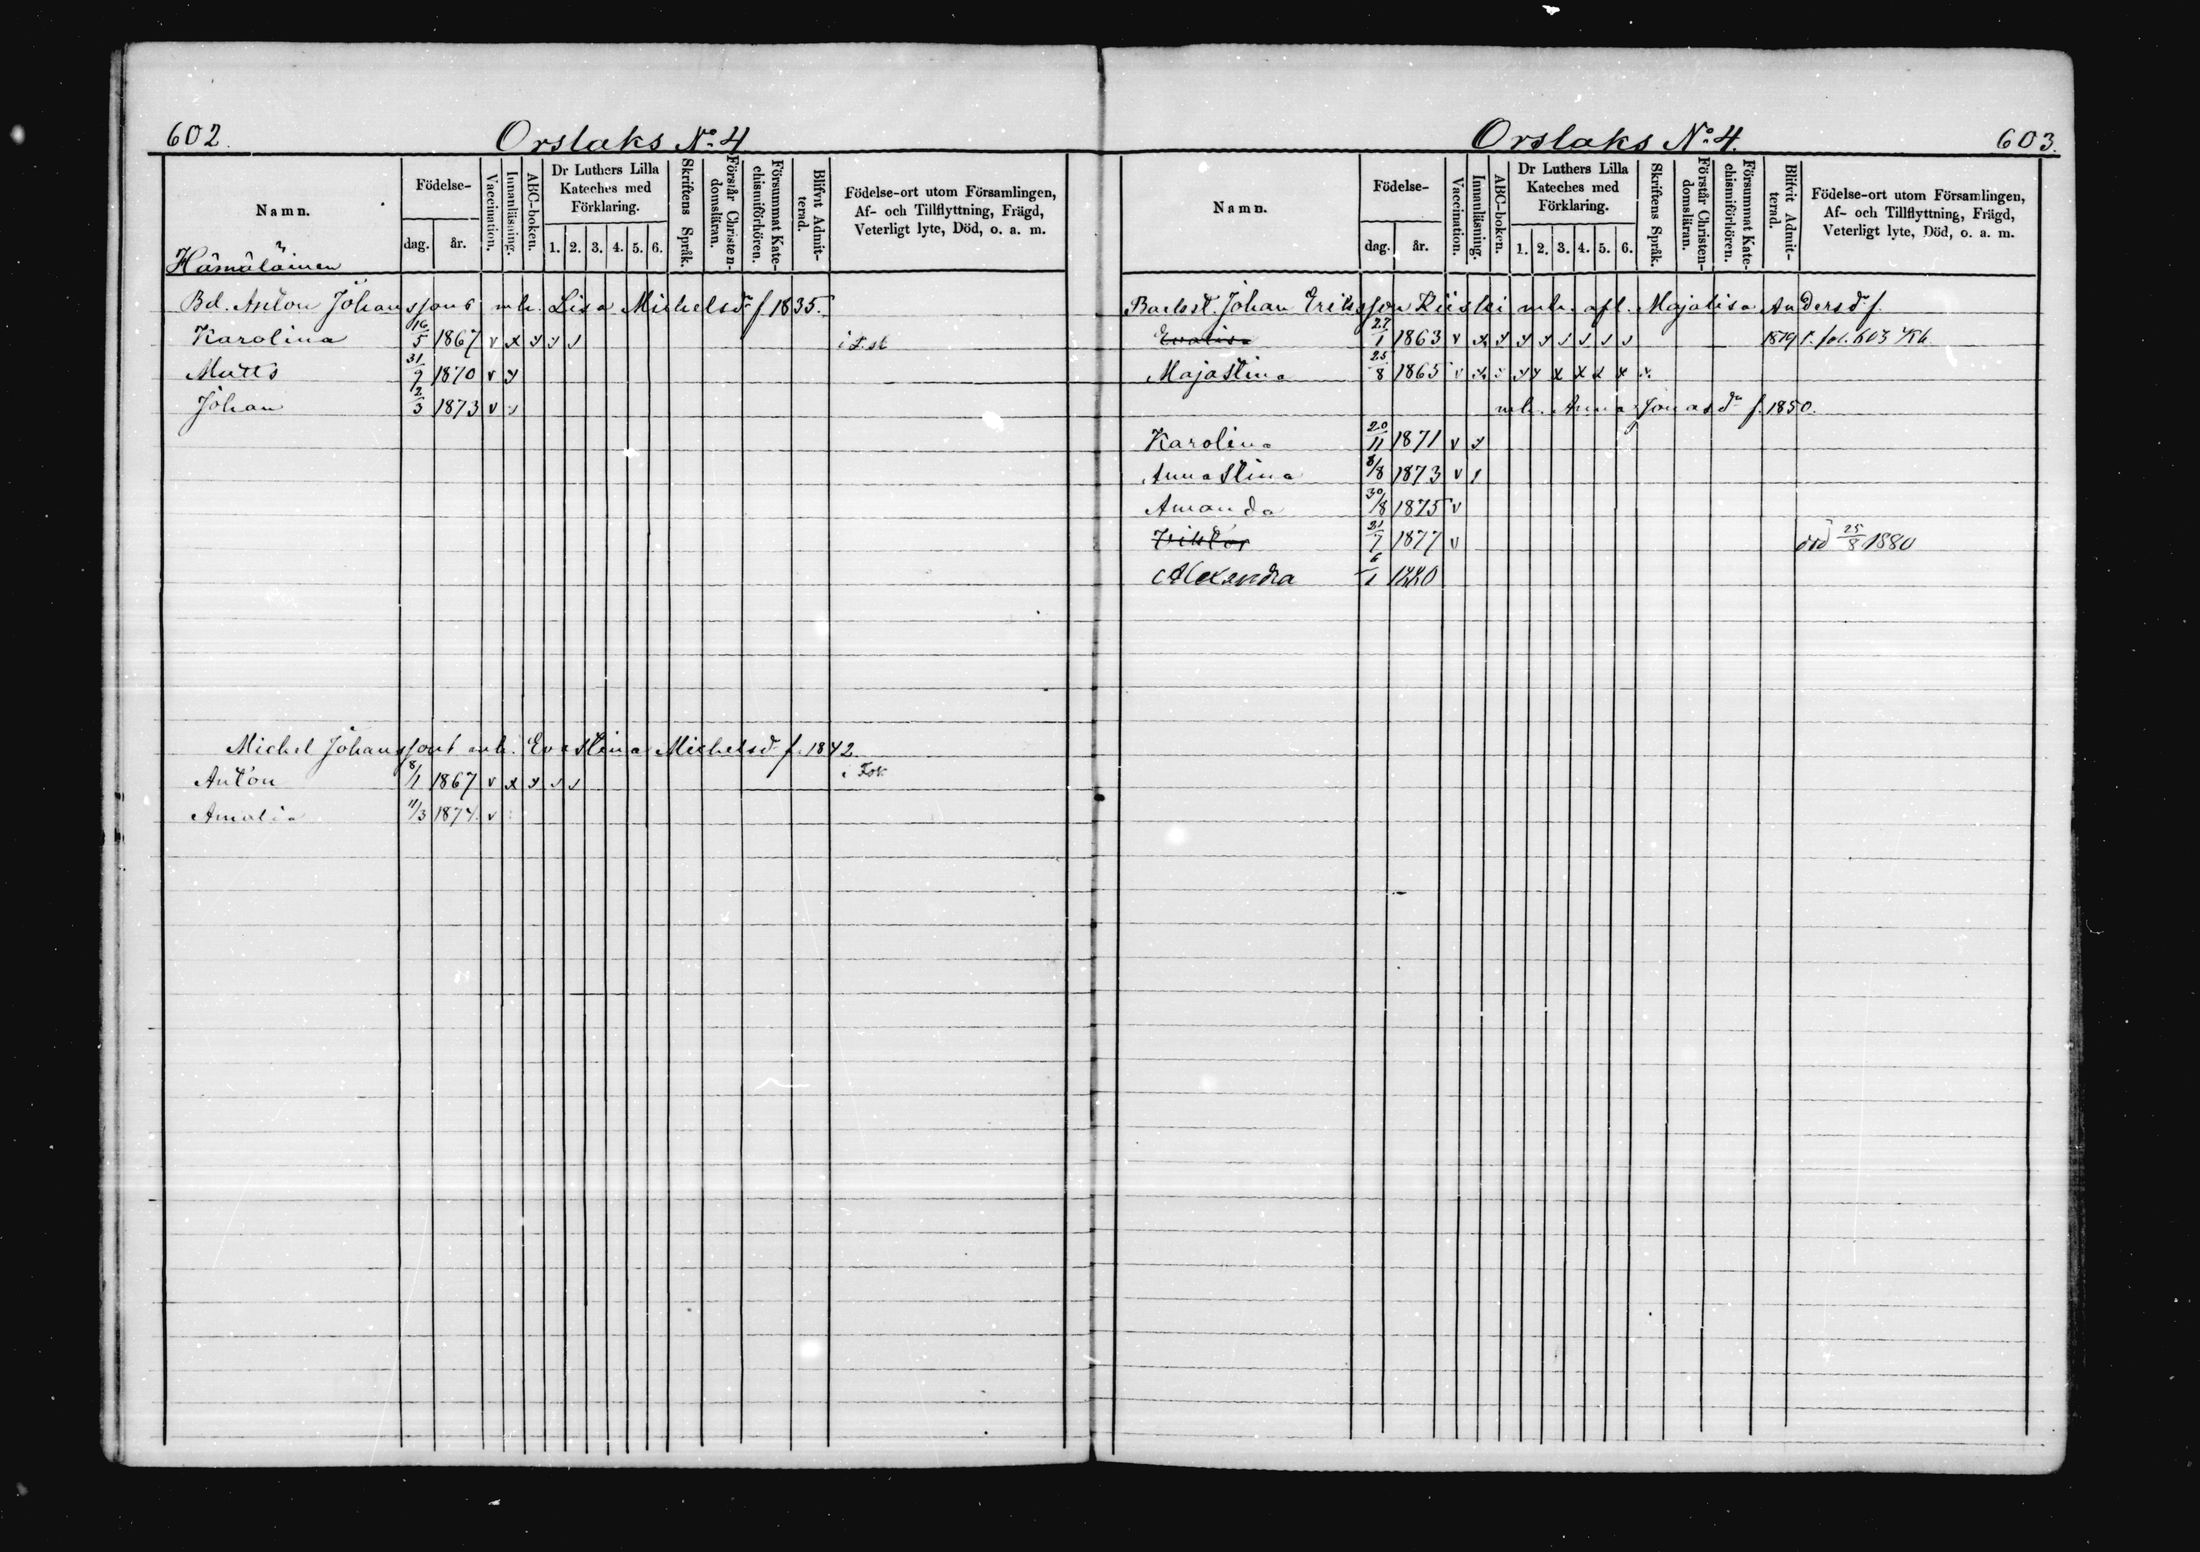 602. Orslaks No 4
Namn. Födelse- dag. år. Vaccination. Innanläsning. ABC-boken. Dr Luthers Lilla Kateches med Förklaring. 1. 2. 3. 4. 5. 6. Skriftens Språk. Förstår Christendomsläran. Försummat Katechismiförhören. Blifvit Admitterad. Födelse-ort utom Församlingen, Af- och Tillflyttning, Frägd, Veterligt lyte, Död, o. a. m.
Hämäläinen
Bd. Anton Johanssons mh. Lisa Michelsdr f. 1835.
Karolina 16/5 1867 v x
Matts 31/7 1870 v
Johan 2/3 1873 v
Michel Johanssons mh. Evastina Michelsd. f. 1842
Anton 8/1 1867 v x
Amalia 11/3 1874. v
Orslaks No 4. 603.
Namn. Födelse- dag. år. Vaccination. Innanläsning. ABC-boken. Dr Luthers Lilla Kateches med Förklaring. 1. 2. 3. 4. 5. 6. Skriftens Språk. Förstår Christendomsläran. Försummat Katechismiförhören. Blifvit Admitterad. Födelse-ort utom Församlingen, Af- och Tillflyttning, Frägd, Veterligt lyte, Död, o. a. m.
Johan Eriksson mh. afl. Majalisa Andersdr f.
Evalisa 27/1 1863 v x 1879
Majastina 25/8 1865 v x
mh. Anna Jonasdr f. 1850.
Karolina 20/11 1871 v
Annastina 8/8 1873 v
Amanda 30/8 1875 v
Viktor 21/7 1877 v död 25/8 1880
Alexandra 6/1 1880